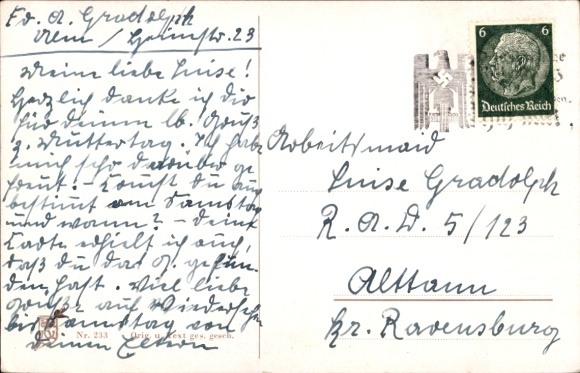 Fr. A. Gradolph
Ulm / Heimstr. 23
Meine liebe Luise!
Herzlich danke ich dir
für deinen lb. Gruß
z. Muttertag. Ich habe
mich sehr darüber ge
freut. - Kommst du ganz
bestimmt am Samstag
und wann? - Deine
Karte erhielt ich auch,
daß du das P. gefun-
den hast. Viel liebe
Grüße auf Wiedersehn
bis Samstag von
deinen Eltern
Nr. 233 Orig. u. Text ges. gesch.
6 6
Deutsches Reich
Arbeitsmaid
Luise Gradolph
R. A. D. 5/123
Altann
Kr. Ravensburg